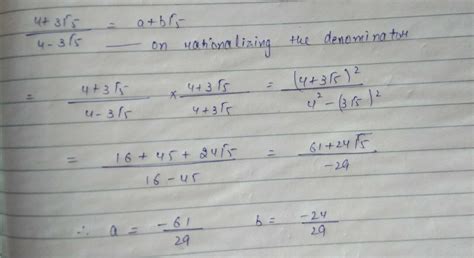 (4+3√5)/(4-3√5) = a+b√5
—— on rationalizing the denominator
= (4+3√5)/(4-3√5) × (4+3√5)/(4+3√5) = (4+3√5)²/(4²-(3√5)²)
= (16+45+24√5)/(16-45) = (61+24√5)/-29
∴ a = -61/29 b = -24/29